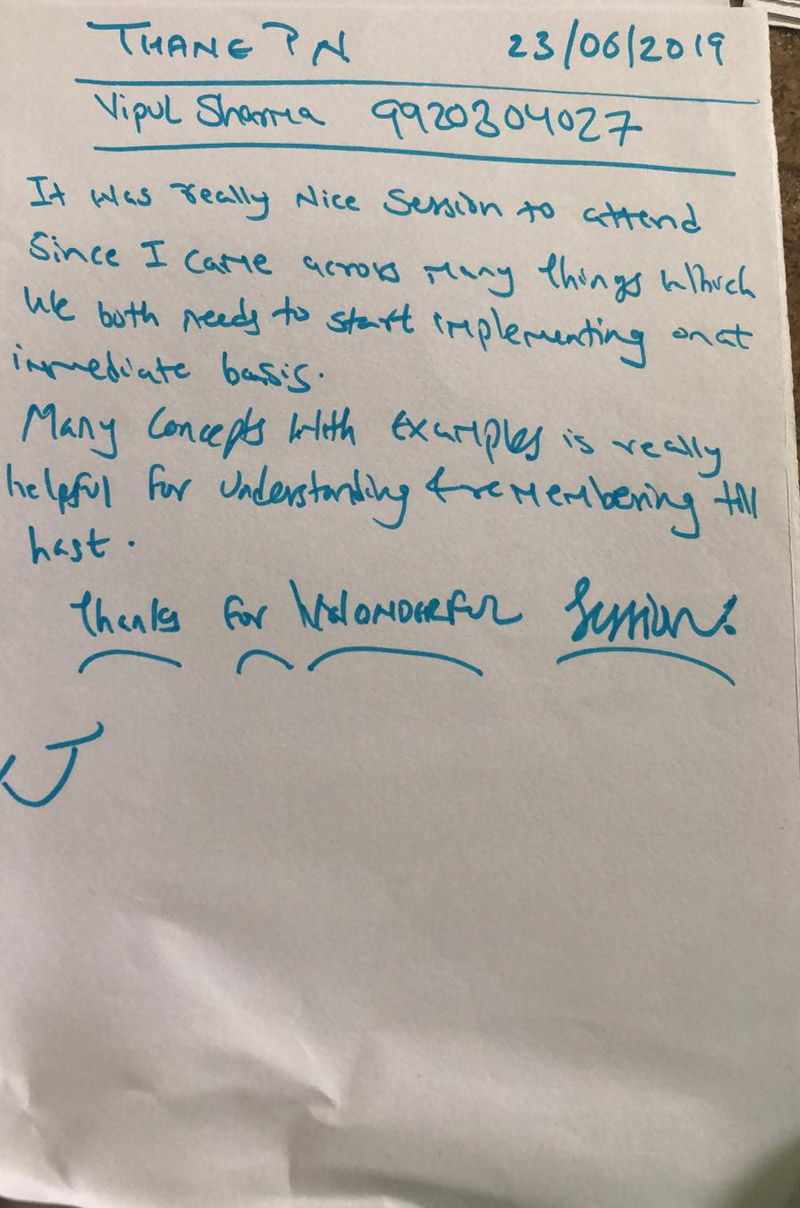 THANE PN 23/06/2019
Vipul Sharma 9920304027
It was really Nice Session to attend
Since I came across many things which
We both needs to start implementing onat
immediate basis.
Many Concepts with Examples is really
helpful for Understanding & remembering till
hast.
Thanks for WONDERFUL Session!